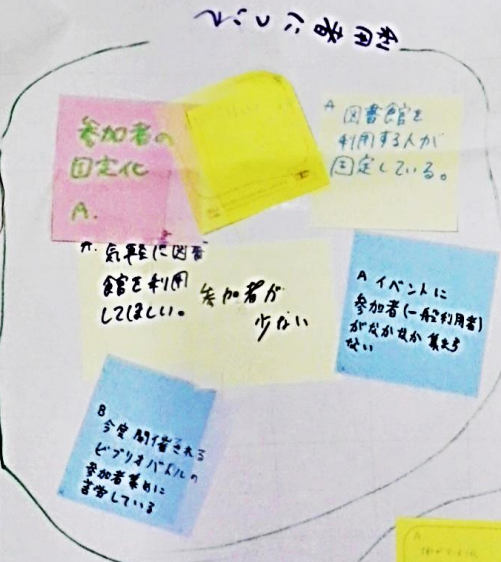 利用者について
参加者の
固定化
A.
A 図書館を
利用する人が
固定している。
A. 気軽に図書
館を利用
してほしい。
参加者が
少ない
A イベントに
参加者(一般利用者)
がなかなか集まら
ない
B
今度開催される
ビブリオバトルの
参加者集めに
苦労している
A